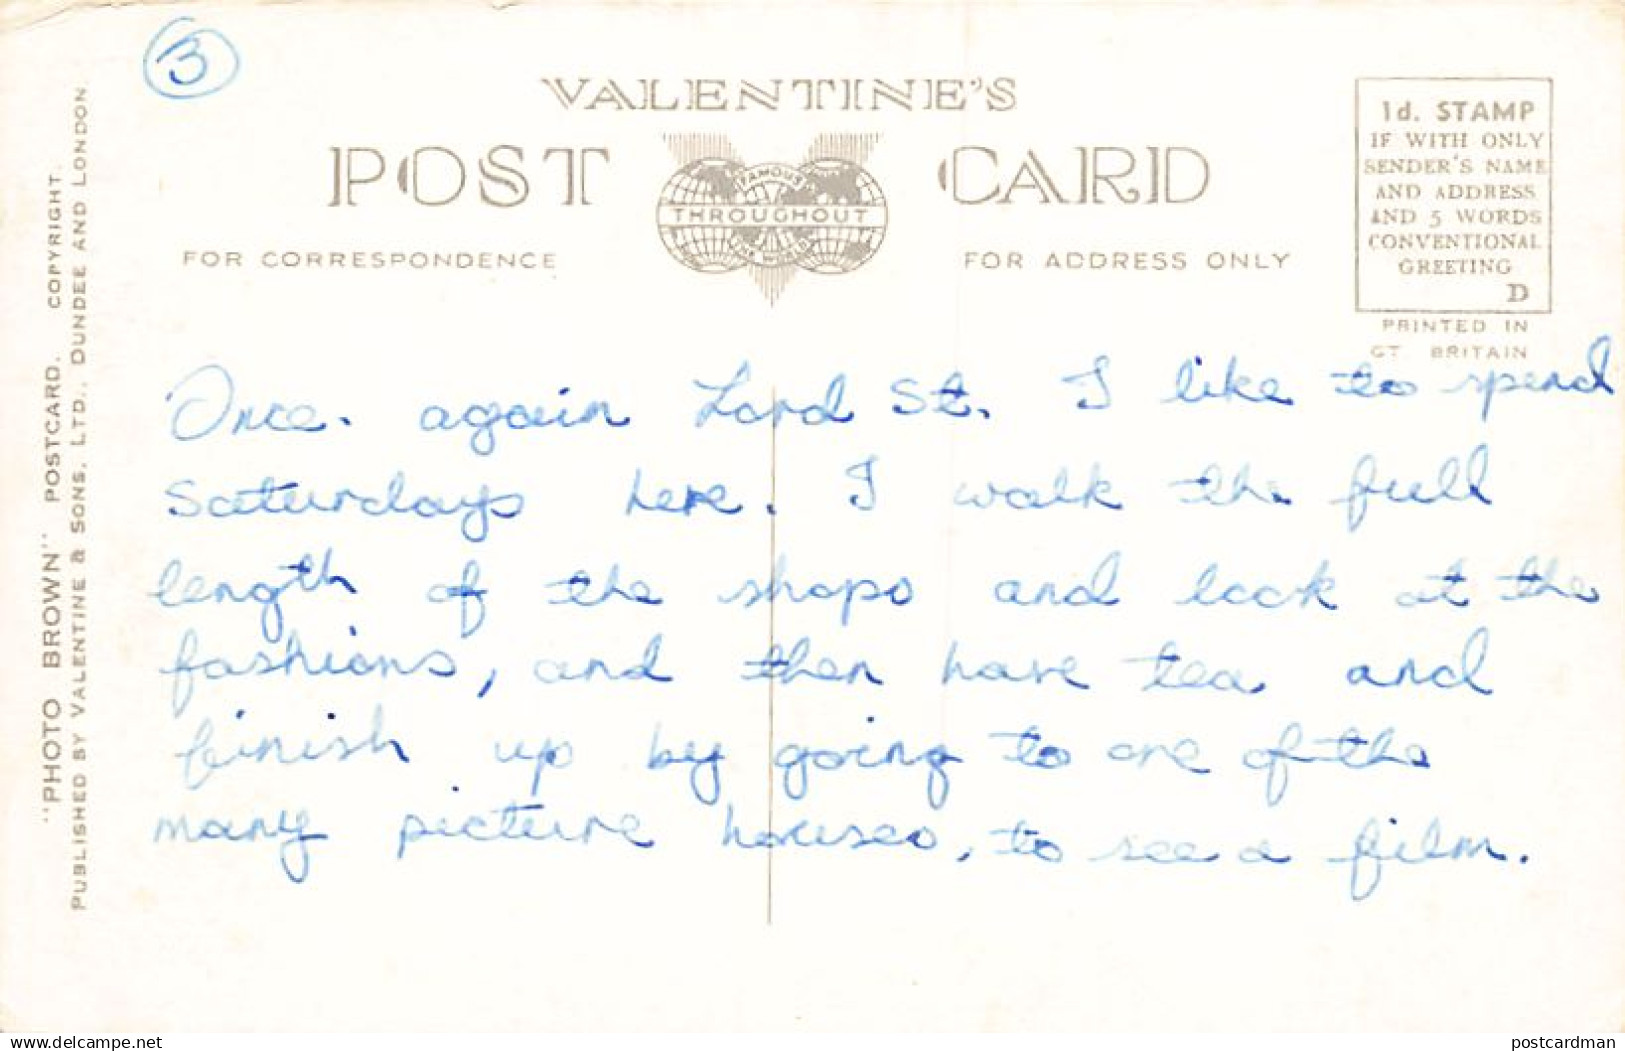 3
VALENTINE'S
POST CARD
FAMOUS
THROUGHOUT
THE WORLD
FOR CORRESPONDENCE
FOR ADDRESS ONLY
1d. STAMP
IF WITH ONLY
SENDER'S NAME
AND ADDRESS
AND 5 WORDS
CONVENTIONAL
GREETING
D
PRINTED IN
GT BRITAIN
"PHOTO BROWN" POSTCARD. COPYRIGHT.
PUBLISHED BY VALENTINE & SONS, LTD., DUNDEE AND LONDON.
Once. again Lord St. I like to spend
Saturdays here. I walk the full
length of the shops and look at the
fashions, and then have tea and
finish up by going to one of the
many picture houses, to see a film.
www.delcampe.net
postcardman